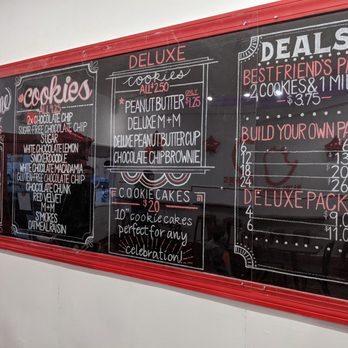 Cookies
ALL $1.25
CHOCOLATE CHIP
SUGAR FREE CHOCOLATE CHIP
SUGAR
WHITE CHOCOLATE LEMON
SNICKERDOODLE
WHITE CHOCOLATE MACADAMIA
CHOCOLATE CHOCOLATE CHIP
CHOCOLATE CHUNK
RED VELVET
M+M
S'MORES
OATMEAL RAISIN
DELUXE
cookies
ALL $2.50
PEANUT BUTTER ONLY $1.75
DELUXE M+M
DELUXE PEANUT BUTTER CUP
CHOCOLATE CHIP BROWNIE
COOKIE CAKES
$20
10" cookie cakes
perfect for any
celebration!
DEALS
BEST FRIEND'S PA
2 COOKIES & 1 MI
$3.75
BUILD YOUR OWN PA
6
12
24
36
DELUXE PACK
4
6